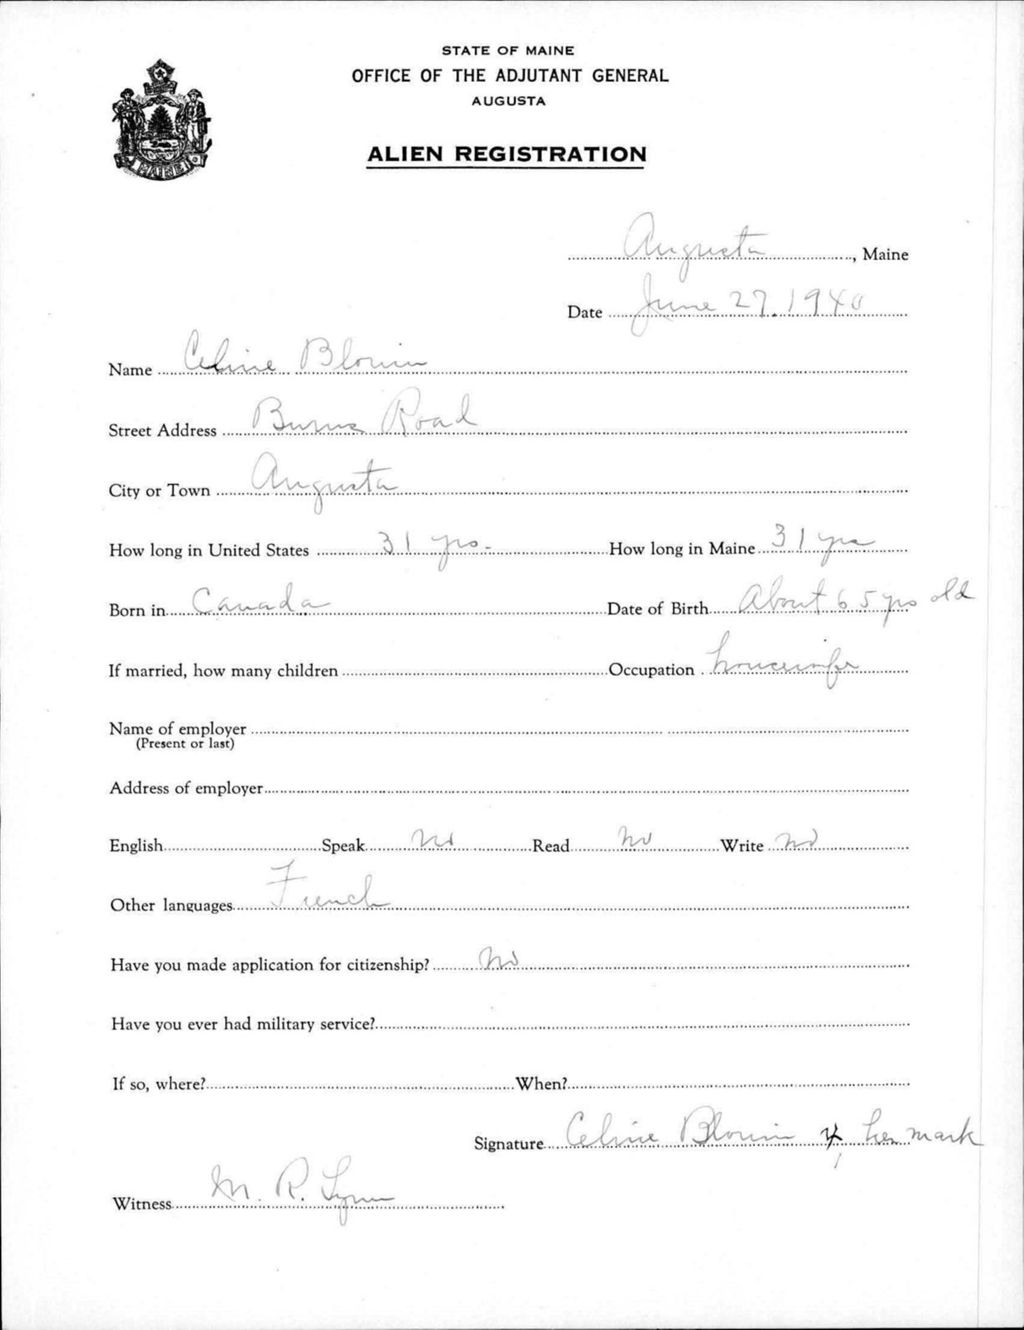 STATE OF MAINE
OFFICE OF THE ADJUTANT GENERAL
AUGUSTA
ALIEN REGISTRATION
MAINE
Augusta, Maine
Date June 27, 1940
Name Celine Blouin
Street Address Burns Road
City or Town Augusta
How long in United States 31 yrs. How long in Maine 31 yrs
Born in Canada Date of Birth About 65 yrs old
If married, how many children Occupation housewife
Name of employer
(Present or last)
Address of employer
English Speak No Read No Write No
Other languages French
Have you made application for citizenship? No
Have you ever had military service?
If so, where? When?
Signature Celine Blouin X her mark
Witness M. R. Lynn